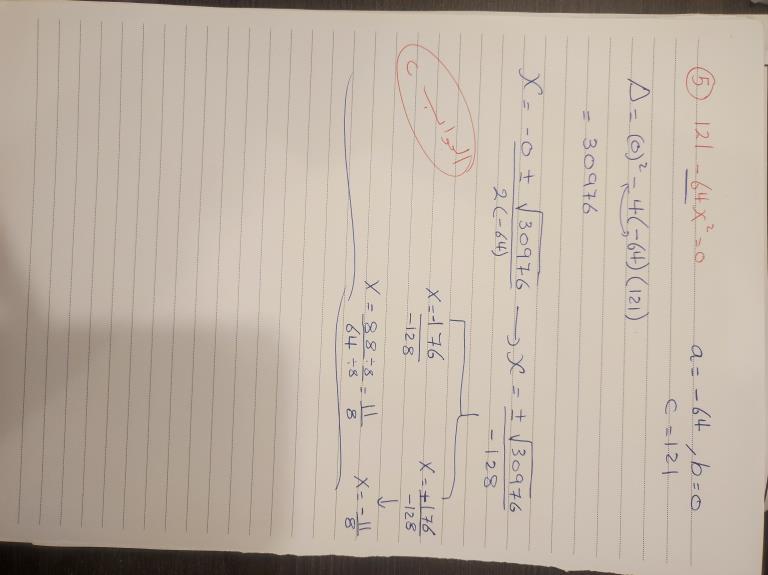 ⑤ 121 - 64x² = 0 a = -64, b = 0
c = 121
Δ = (0)² - 4(-64)(121)
= 30976
x = -0 ± √30976 / 2(-64) → x = ± √30976 / -128
x = -176 / -128 x = +176 / -128
x = 88 ÷ 8 / 64 ÷ 8 = 11 / 8 x = -11 / 8
الجواب c